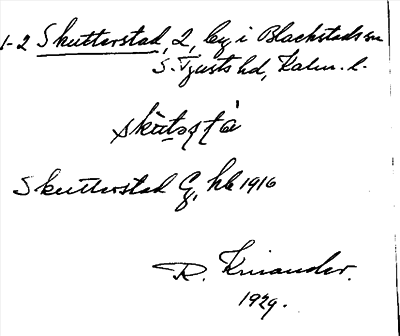 1-2 Skutterstad, 2, by i Blackstads sn
S. Tjusts hd, Kalm. l.
Skutterstad G, hk 1916
R. Kniander.
1929.